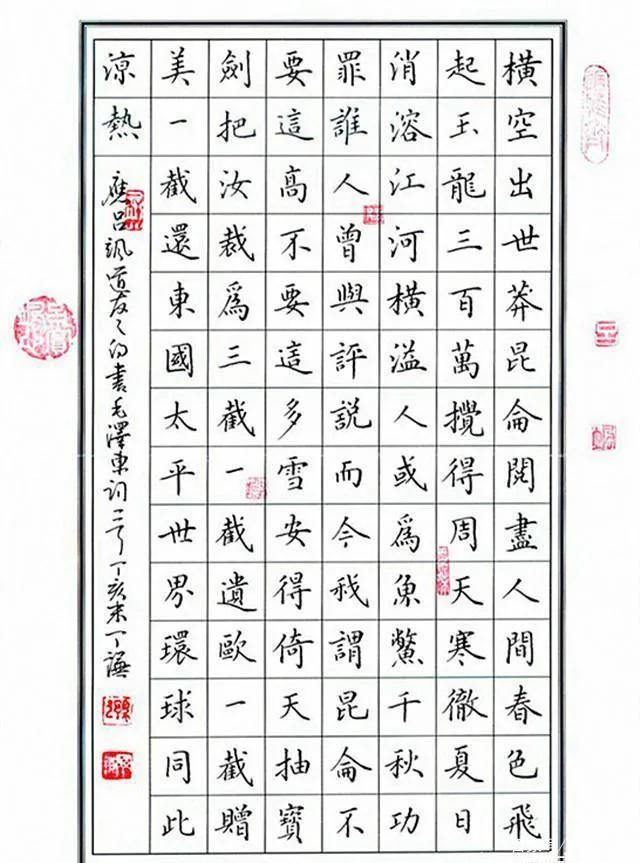 橫空出世莽昆侖閱盡人間春色飛
起玉龍三百萬攪得周天寒徹夏日
消溶江河橫溢人或爲魚鱉千秋功
罪誰人曾與評說而今我謂昆侖不
要這高不要這多雪安得倚天抽寶
劍把汝裁爲三截一截遺歐一截贈
美一截還東國太平世界環球同此
涼熱
應呂颯道友之書毛澤東詞二首丁亥末丁謙